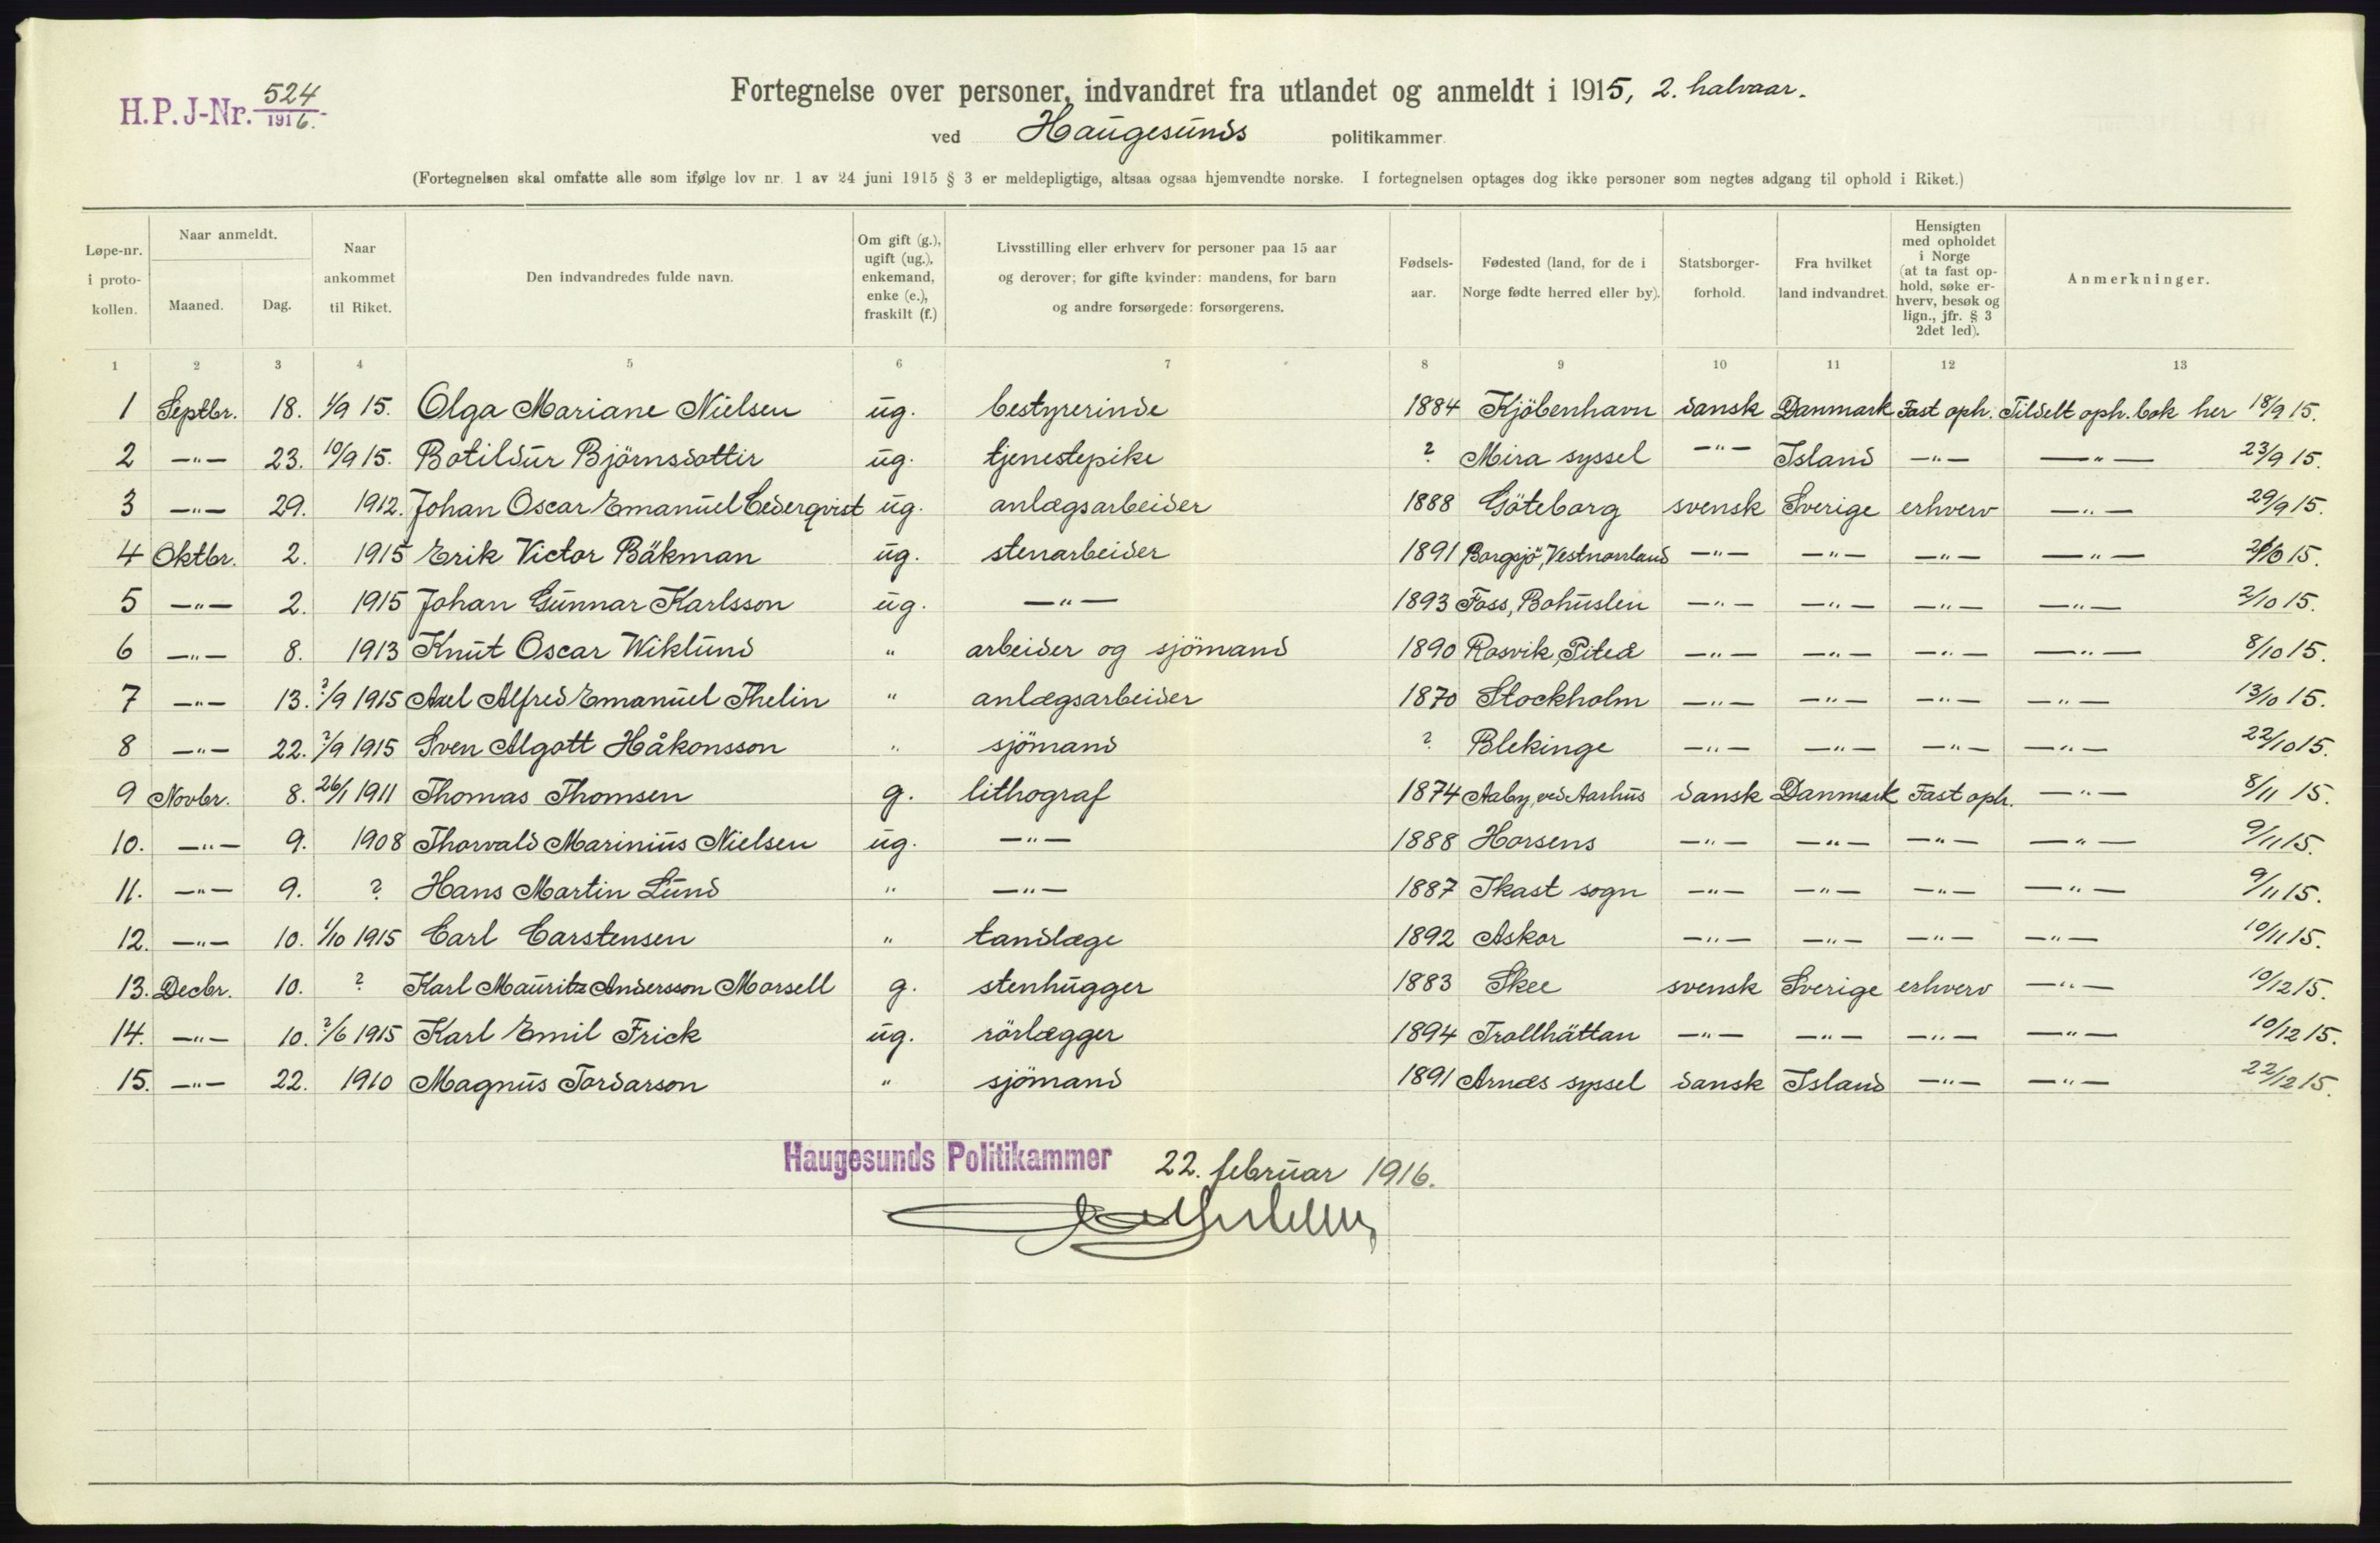 H.P. J-Nr. 524/1916.
Fortegnelse over personer, indvandret fra utlandet og anmeldt i 1915, 2. halvaar.
ved Haugesunds politikammer
(Fortegnelsen skal omfatte alle som ifølge lov nr. 1 av 24 juni 1915 § 3 er meldepligtige, altsaa ogsaa hjemvendte norske. I fortegnelsen optages dog ikke personer som negtes adgang til ophold i Riket.)
Løpe-nr. i proto-kollen.
Naar anmeldt.
Maaned.
Dag.
Naar ankommet til Riket.
Den indvandredes fulde navn.
Om gift (g.), ugift (ug.), enkemand, enke (e.), fraskilt (f.)
Livsstilling eller erhverv for personer paa 15 aar og derover; for gifte kvinder: mandens, for barn og andre forsørgede: forsørgerens.
Fødsels-aar.
Fødested (land, for de i Norge fødte herred eller by).
Statsborger-forhold.
Fra hvilket land indvandret.
Hensigten med opholdet i Norge (at ta fast op-hold, søke er-hverv, besøk og lign., jfr. § 3 2det led).
Anmerkninger.
1 2 3 4 5 6 7 8 9 10 11 12 13
1 Septbr. 18. 1/9 15. Olga Mariane Nielsen ug. bestyrerinde 1884 Kjöbenhavn dansk Danmark Fast oph. Tildelt oph. bok her 18/9 15.
2 -"- 23. 10/9 15. Botildur Björnsdottir ug. tjenestepike ? Mira syssel -"- Island -"- -"- 23/9 15.
3 -"- 29. 1912. Johan Oscar Emanuel Cederqvist ug. anlægsarbeider 1888 Göteborg svensk Sverige erhverv -"- 29/9 15.
4 Oktbr. 2. 1915 Erik Victor Bäkman ug. stenarbeider 1891 Borgsjö, Vestnorrland -"- -"- -"- -"- 2/10 15.
5 -"- 2. 1915 Johan Gunnar Karlsson ug. -"- 1893 Foss, Bohuslen -"- -"- -"- -"- 2/10 15.
6 -"- 8. 1913 Knut Oscar Wiklund " arbeider og sjömand 1890 Rosvik, Piteå -"- -"- -"- -"- 8/10 15.
7 -"- 13. ?/9 1915 Axel Alfred Emanuel Thelin " anlægsarbeider 1870 Stockholm -"- -"- -"- -"- 13/10 15.
8 -"- 22. ?/9 1915 Sven Algott Håkonsson " sjömand ? Blekinge -"- -"- -"- -"- 22/10 15.
9 Novbr. 8. 26/1 1911 Thomas Thomsen g. lithograf 1874 Aaby, ved Aarhus dansk Danmark Fast oph. -"- 8/11 15.
10. -"- 9. 1908 Thorvald Marinius Nielsen ug. -"- 1888 Horsens -"- -"- -"- -"- 9/11 15.
11. -"- 9. ? Hans Martin Lund " -"- 1887 Ikast sogn -"- -"- -"- -"- 9/11 15.
12. -"- 10. 1/10 1915 Carl Carstensen " tandlæge 1892 Askor -"- -"- -"- -"- 10/11 15.
13. Decbr. 10. ? Karl Mauritz Andersson Morsell g. stenhugger 1883 Skee svensk Sverige erhverv -"- 10/12 15.
14. -"- 10. ?/6 1915 Karl Emil Frick ug. rörlægger 1894 Trollhättan -"- -"- -"- -"- 10/12 15.
15. -"- 22. 1910 Magnus Tordarson " sjömand 1891 Arnæs syssel dansk Island -"- -"- 22/12 15.
Haugesunds Politikammer 22. februar 1916.